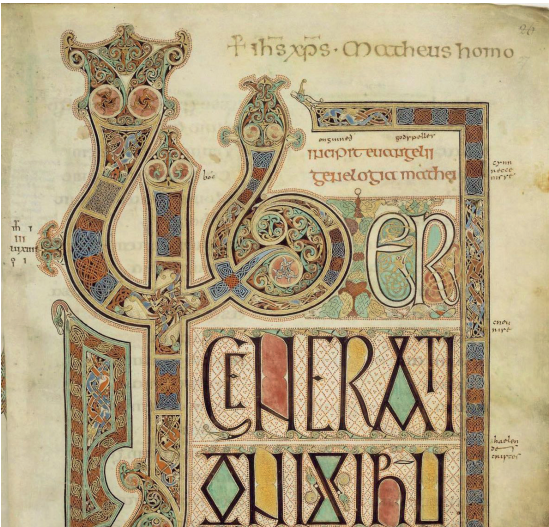 + ihs xps · Matheus homo
incipit euangelii
genelogia mathei
boc
LIBER
GENERATI
ONISIHU